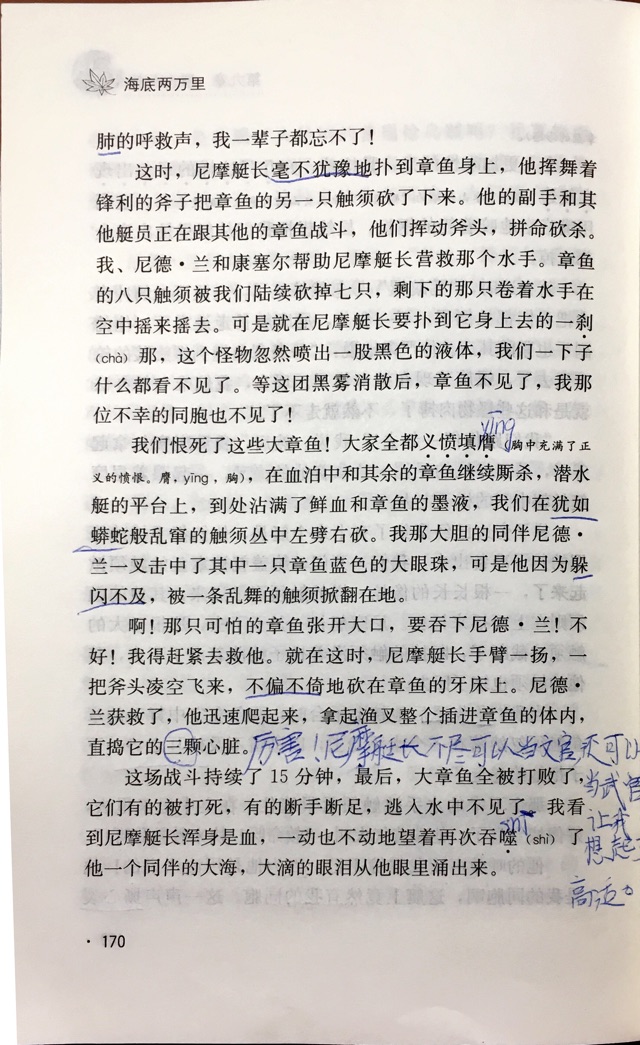 海底两万里
肺的呼救声，我一辈子都忘不了！
这时，尼摩艇长毫不犹豫地扑到章鱼身上，他挥舞着
锋利的斧子把章鱼的另一只触须砍了下来。他的副手和其
他艇员正在跟其他的章鱼战斗，他们挥动斧头，拼命砍杀。
我、尼德·兰和康塞尔帮助尼摩艇长营救那个水手。章鱼
的八只触须被我们陆续砍掉七只，剩下的那只卷着水手在
空中摇来摇去。可是就在尼摩艇长要扑到它身上去的一刹
（chà）那，这个怪物忽然喷出一股黑色的液体，我们一下子
什么都看不见了。等这团黑雾消散后，章鱼不见了，我那
位不幸的同胞也不见了！
yīng
我们恨死了这些大章鱼！大家全都义愤填膺（胸中充满了正
义的愤恨。膺，yīng，胸），在血泊中和其余的章鱼继续厮杀，潜水
艇的平台上，到处沾满了鲜血和章鱼的墨液，我们在犹如
蟒蛇般乱窜的触须丛中左劈右砍。我那大胆的同伴尼德·
兰一叉击中了其中一只章鱼蓝色的大眼珠，可是他因为躲
闪不及，被一条乱舞的触须掀翻在地。
啊！那只可怕的章鱼张开大口，要吞下尼德·兰！不
好！我得赶紧去救他。就在这时，尼摩艇长手臂一扬，一
把斧头凌空飞来，不偏不倚地砍在章鱼的牙床上。尼德·
兰获救了，他迅速爬起来，拿起渔叉整个插进章鱼的体内，
直捣它的三颗心脏。厉害！尼摩艇长不尽可以当文官 还可以
当武官
让我
想起了
高适。
这场战斗持续了15分钟，最后，大章鱼全被打败了，
它们有的被打死，有的断手断足，逃入水中不见了。我看
shì
到尼摩艇长浑身是血，一动也不动地望着再次吞噬（shì）了
他一个同伴的大海，大滴的眼泪从他眼里涌出来。
· 170